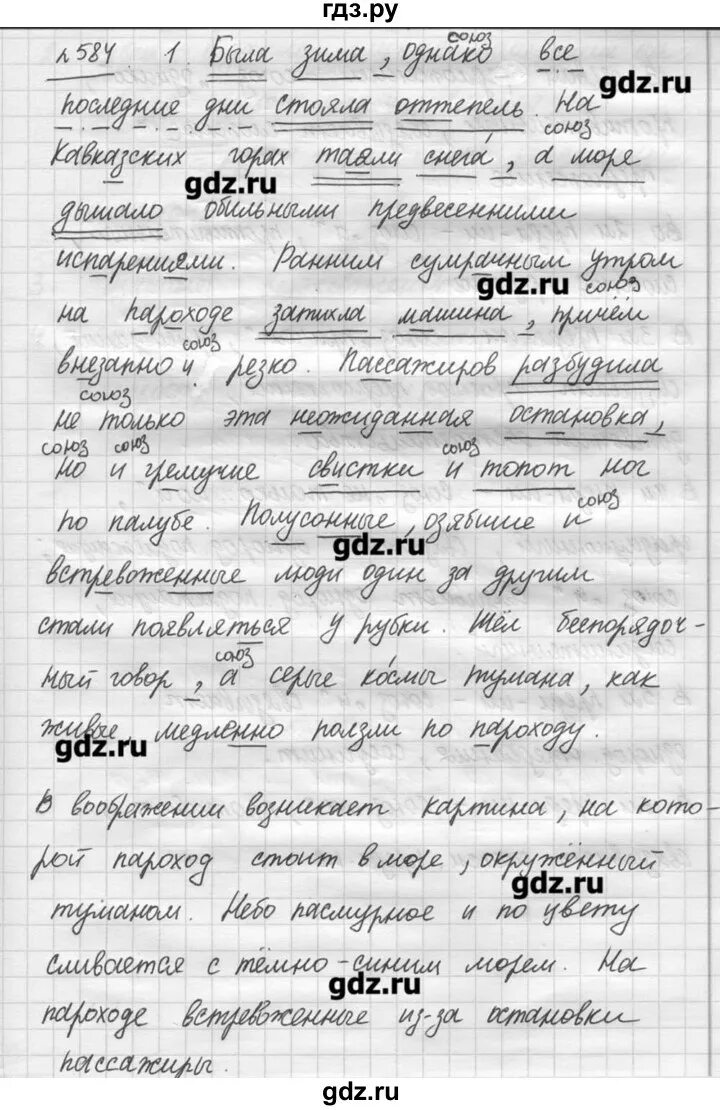 гдз.ру
союз
№584 1. Была зима, однако все
gdz.ru
последние дни стояла оттепель. На
союз
Кавказских горах таяли снега, а море
gdz.ru
дышало обильными предвесенними
испарениями. Ранним сумрачным утром
gdz.ru
союз
на пароходе затихла машина, причём
союз
внезапно и резко. Пассажиров разбудила
союз
не только эта неожиданная остановка,
союз союз союз
но и гремучие свистки и топот ног
союз
по палубе. Полусонные, озябшие и
gdz.ru
встревоженные люди один за другим
стали появляться у рубки. Шёл беспорядоч-
союз
ный говор, а серые космы тумана, как
живые, медленно ползли по пароходу.
gdz.ru
В воображении возникает картина, на кото-
рой пароход стоит в море, окружённый
gdz.ru
туманом. Небо пасмурное и по цвету
сливается с тёмно-синим морем. На
gdz.ru
пароходе встревоженные из-за остановки
пассажиры.
gdz.ru